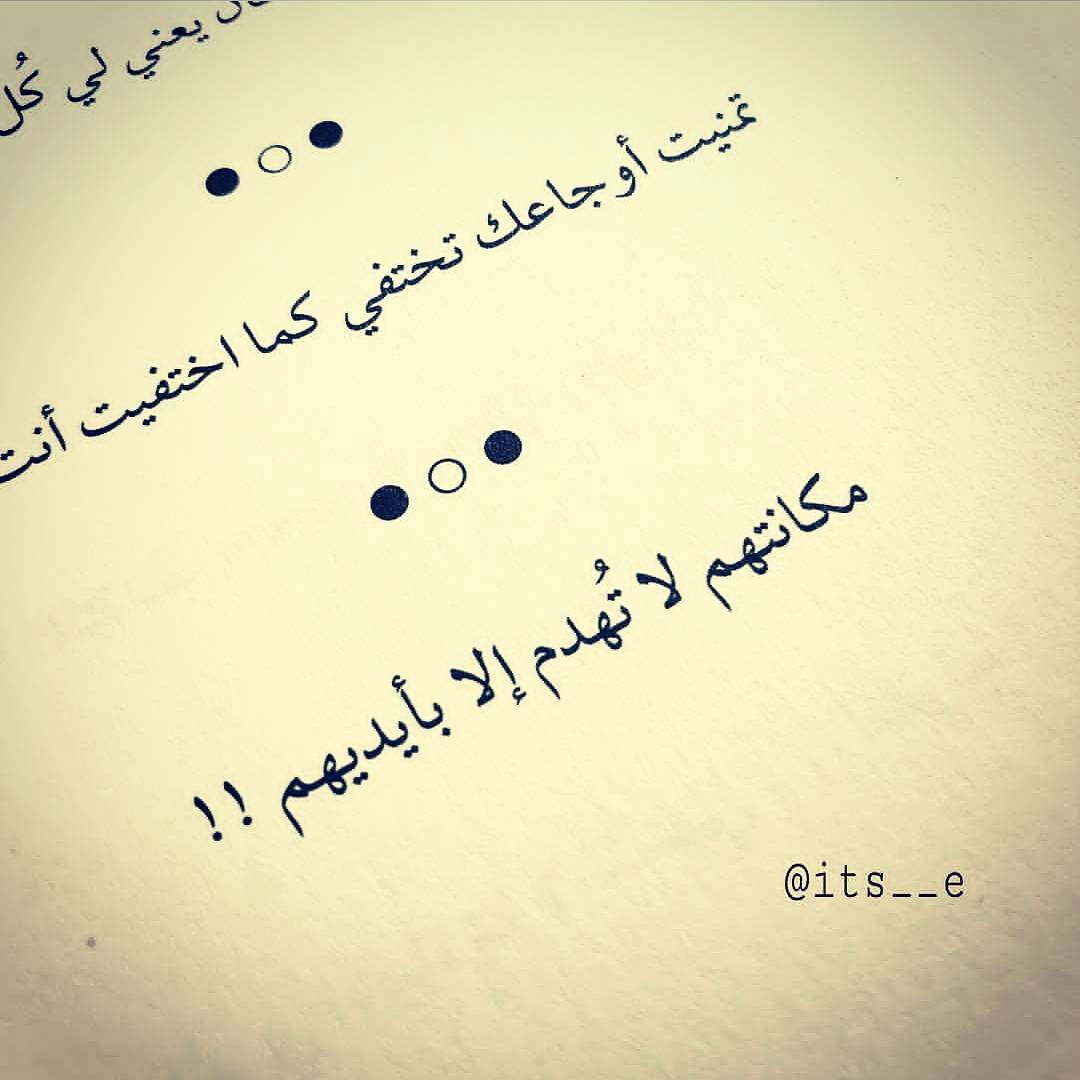 يعني لي كُل
تمنيت أوجاعك تختفي كما اختفيت أنت
مكانتهم لا تُهدم إلا بأيديهم !!
@its__e